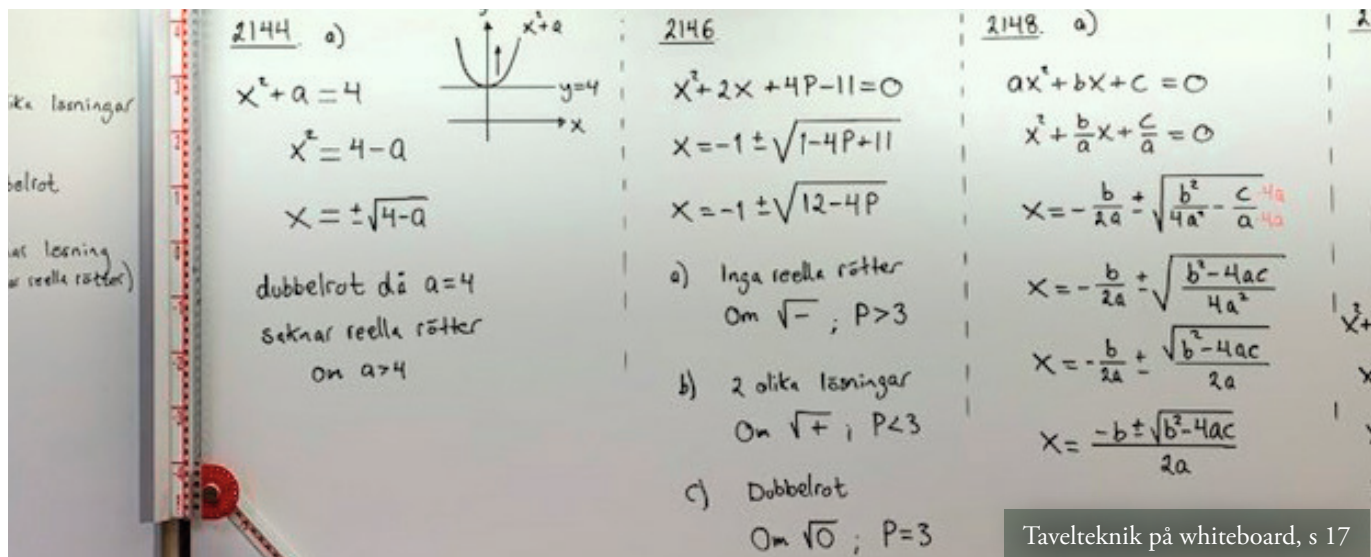 lika lösningar
belrot
lösning
reella rötter)
2144. a)
x²+a
y=4
x
x²+a=4
x²=4-a
x=±√4-a
dubbelrot då a=4
saknar reella rötter
om a>4
2146
x²+2x+4P-11=0
x=-1±√1-4P+11
x=-1±√12-4P
a) Inga reella rötter
Om √- ; P>3
b) 2 olika lösningar
Om √+ ; P<3
c) Dubbelrot
Om √0 ; P=3
2148. a)
ax²+bx+c=0
x²+b/a x+c/a=0
x=-b/2a±√b²/4a²-c·4a/a·4a
x=-b/2a±√(b²-4ac)/4a²
x=-b/2a±√b²-4ac/2a
x=-b±√b²-4ac/2a
2
x²+
x
Tavelteknik på whiteboard, s 17